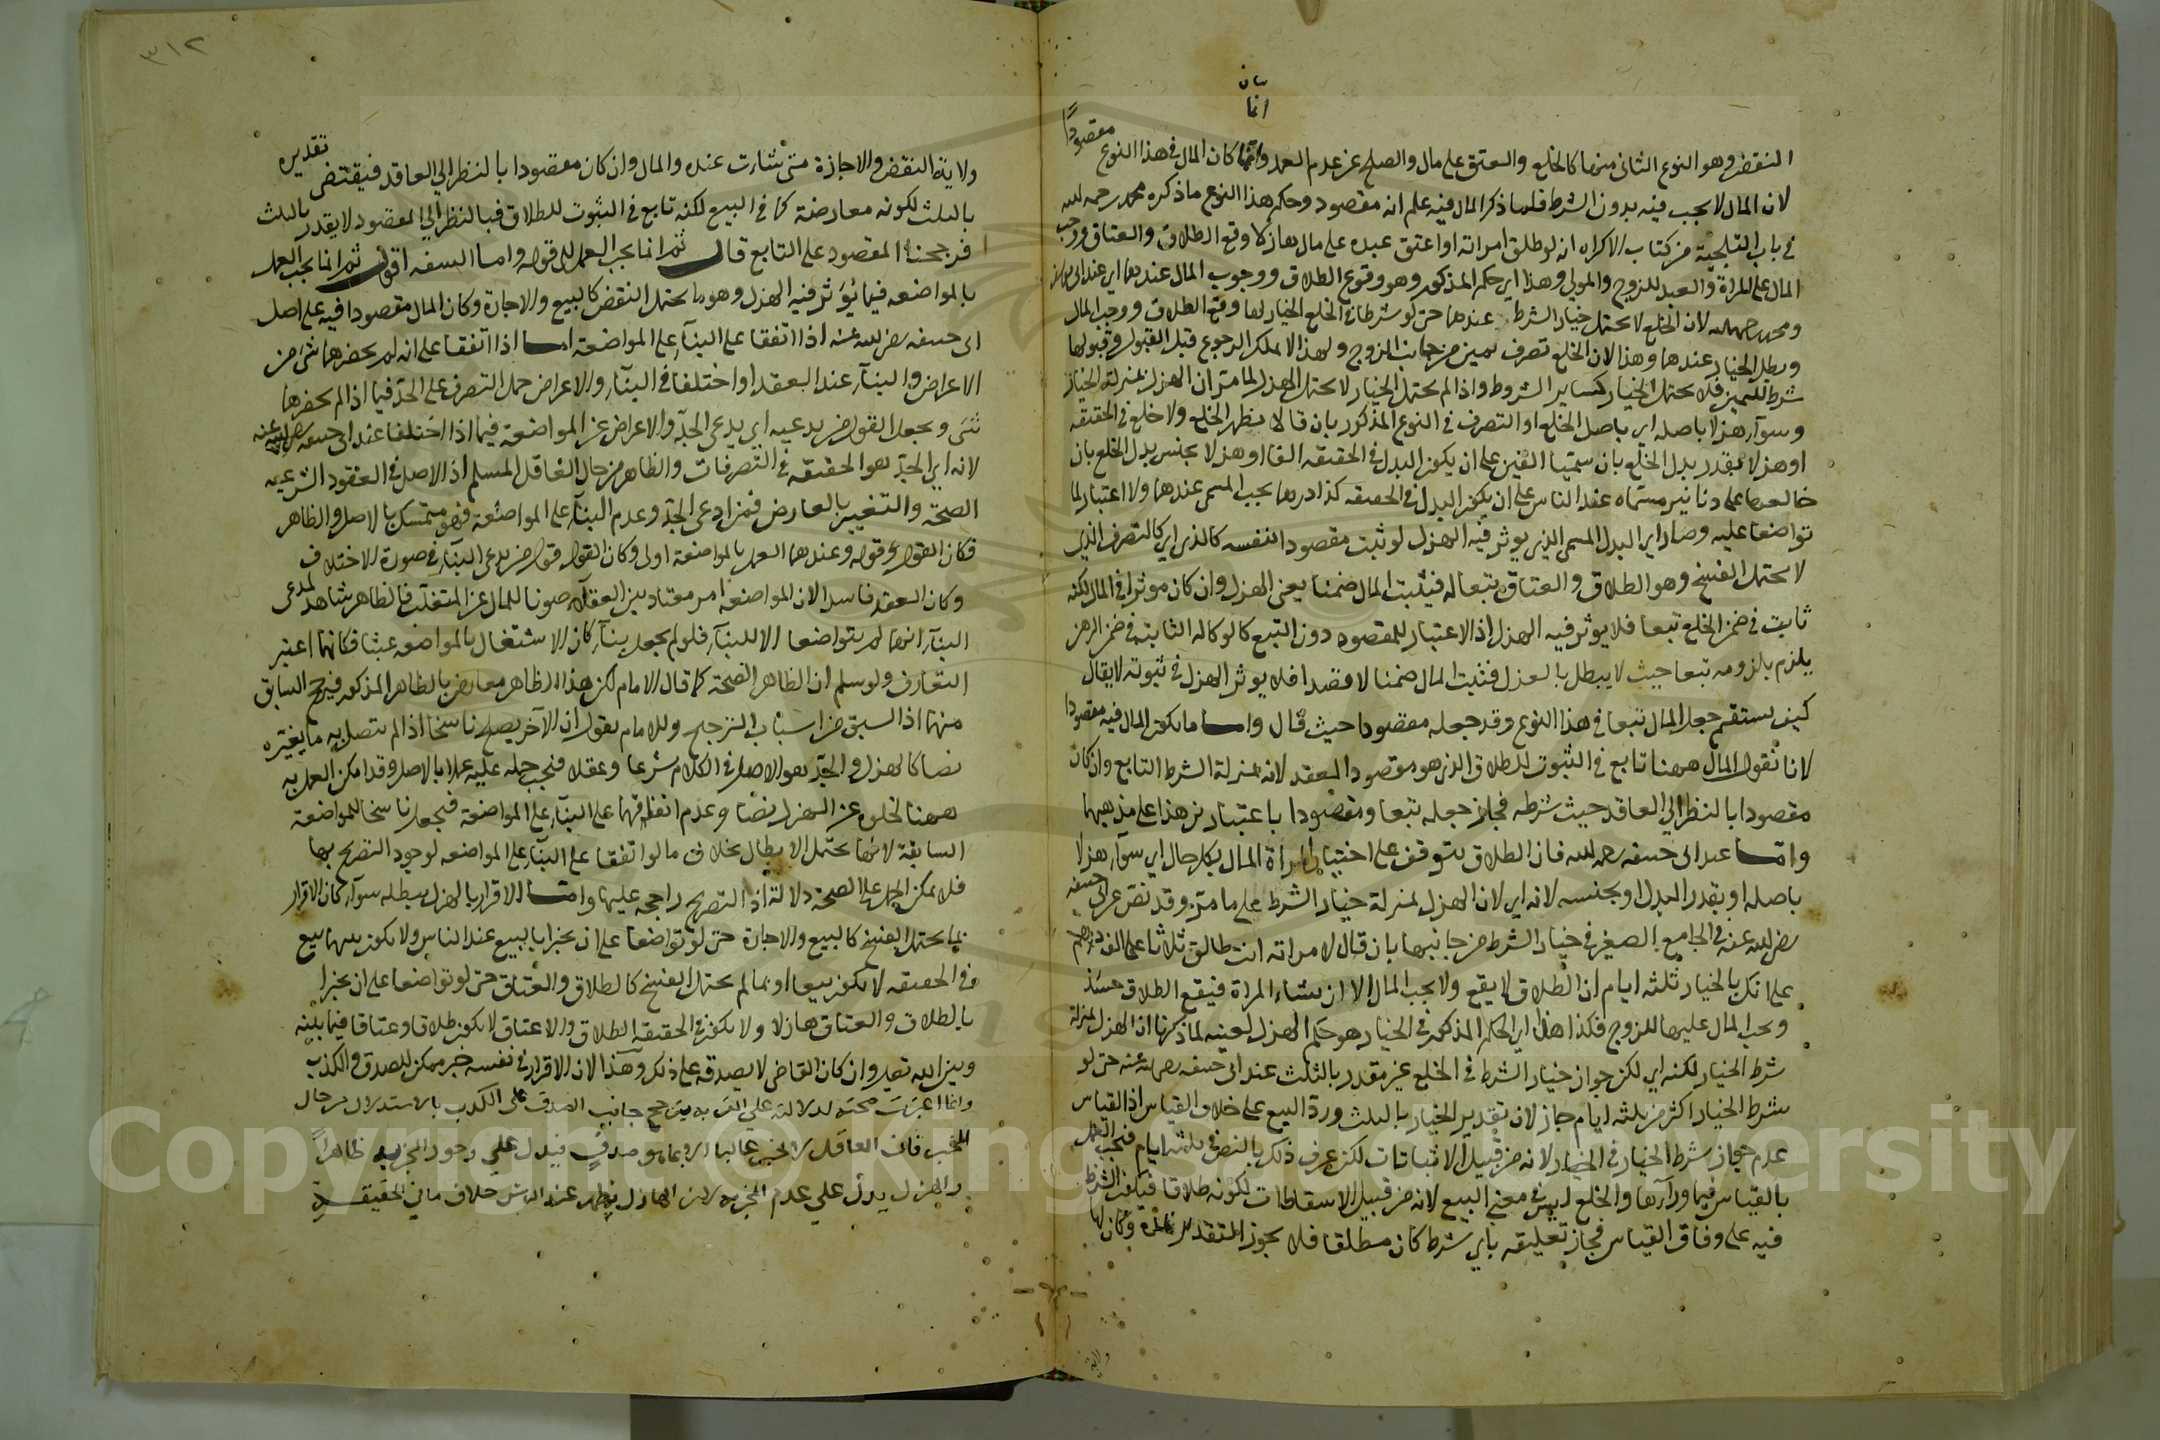 بيان
انما
النقض وهو النوع الثاني منها كالخلع والعتق على مال والصلح عن دم العمد وانما كان المال في هذا النوع مقصودا
لان المال لا يجب فيه بدون الشرط فلما ذكر المال فيه علم انه مقصود وحكم هذا النوع ما ذكره محمد رحمه الله
في باب التلجية من كتاب الاكراه انه لو طلق امراته او اعتق عبده على مال هازلا وقع الطلاق والعتاق ووجب
المال على المراة والعبد للزوج والمولى وهذا اي حكم المذكور وهو وقوع الطلاق ووجوب المال عندهما اي عند ابي يوسف
ومحمد رحمهما الله لان الخلع لا يحتمل خيار الشرط عندهما حتى لو شرطا في الخلع الخيار لها وقع الطلاق ووجب المال
وبطل الخيار عندهما وهذا لان الخلع تصرف يمين من جانب الزوج ولهذا لا يملك الرجوع قبل القبول وقبولها
شرط لليمين فلا يحتمل الخيار كساير الشروط واذا لم يحتمل الخيار لا يحتمل الهزل لما مر ان الهزل بمنزلة الخيار
وسوآء هزلا باصله اي باصل الخلع او التصرف في النوع المذكور بان قالا نظهر الخلع ولا خلع في الحقيقة
او هزلا بقدر بدل الخلع بان سميا الفين على ان يكون البدل في الحقيقة الفا او هزلا بجنس بدل الخلع بان
خالعها على دنانير مسماة عند الناس على ان يكون البدل في الحقيقة كذا درهما يجب المسمى عندهما ولا اعتبار لما
تواضعا عليه وصار اي البدل المسمى الذي يوثر فيه الهزل لو ثبت مقصودا بنفسه كالذي اي كالتصرف الذي
لا يحتمل الفسخ وهو الطلاق والعتاق تبعا له فيثبت المال ضمنا يعني الهزل وان كان موثرا في المال لكنه
ثابت في ضمن الخلع تبعا فلا يوثر فيه الهزل اذ الاعتبار للمقصود دون التبع كالوكالة الثابتة في ضمن الرهن
يلزم بلزومه تبعا حيث لا يبطل بالعزل فثبت المال ضمنا لا قصدا فلا يوثر الهزل في ثبوته لا يقال
كيف يستقيم جعل المال تبعا في هذا النوع وقد جعله مقصودا حيث قال واما ما يكون المال فيه مقصودا
لانا نقول المال ههنا تابع في الثبوت للطلاق الذي هو مقصود العقد لانه بمنزلة الشرط التابع وان كان
مقصودا بالنظر الى العاقد حيث شرطه فجاز جعله تبعا ومقصودا باعتبارين هذا على مذهبهما
واما عند ابي حنيفة رحمه الله فان الطلاق يتوقف على اختيار المرأة المال بكل حال اي سوآء هزلا
باصله او بقدر البدل او بجنسه لانه اي لان الهزل بمنزلة خيار الشرط على ما مر وقد نص عن ابي حنيفة
رضي الله عنه في الجامع الصغير في خيار الشرط من جانبها بان قال لامراته انت طالق ثلاثا على الف درهم
على انك بالخيار ثلثه ايام ان الطلاق لا يقع ولا يجب المال الا ان تشاء المراة فيقع الطلاق حينئذ
ويجب المال عليها للزوج فكذا هذا اي الحكم المذكور في الخيار هو حكم الهزل لعينه لما ذكرنا ان الهزل بمنزلة
شرط الخيار لكنه اي لكن جواز خيار الشرط في الخلع غير مقدر بالثلث عند ابي حنيفة رضي الله عنه حتى لو
شرط الخيار اكثر من ثلثه ايام جاز لان تقدير الخيار بالثلث ورد في البيع على خلاف القياس اذ القياس
عدم جواز شرط الخيار في الخيار لانه من قبيل الاثباتات لكن عرف ذلك بالنص في ثلثه ايام فيجب العمل
بالقياس فيما ورآءها والخلع ليس في معنى البيع لانه من قبيل الاسقاطات لكونه طلاقا فيكون الشرط
فيه على وفاق القياس فجاز تعليقه باي شرط كان مطلقا فلا يجوز التقدير بمدة وكان لها
ولاية
٣١٢
ولاية النقض والاجازة متى شاءت عنده والمال وان كان مقصودا بالنظر الى العاقد فيقتضي تقديره
بالثلث لكونه معاوضة كما في البيع لكنه تابع في الثبوت للطلاق فبالنظر الى المقصود لا يقدر بالثلث
فرجحنا المقصود على التابع قال ثم انما يجب العمل الى قوله واما السفه اقول ثم انما يجب العمل
بالمواضعه فيما يؤثر فيه الهزل وهو ما يحتمل النقض كالبيع والاجارة وكان المال مقصودا فيه على اصل
ابي حنيفه رضي الله عنه اذا اتفقا على البنآء على المواضعة اما اذا اتفقا على انه لم يحضرهما شئ من
الاعراض والبنآء عند العقد او اختلفا في البنآء والاعراض حمل التصرف على الجد فيما اذا لم يحضرهما
شئ ويجعل القول من يدعيه اي يدعي الجد والاعراض عن المواضعة فيما اذا اختلفا عند ابي حنيفه رضي الله عنه
لانه اي الجد هو الحقيقه في التصرفات والظاهر من حال العاقل المسلم اذ الاصل في العقود الشرعيه
الصحة والتغيير بالعارض فمن ادعى الجد وعدم البنآء على المواضعة فهو متمسك بالاصل والظاهر
فكان القول قوله وعندهما العمل بالمواضعة اولى وكان القول قول من يدعي البنآء في صورة الاختلاف
وكان العقد فاسدا لان المواضعة امر معتاد بين العقلآء صونا للمال عن المتغلب فالظاهر شاهد لمدعي
البنآء انهما لم يتواضعا الا للبنآء فلو لم يجعل بنآء كان الاشتغال بالمواضعه عبثا فكانهما اعتبر
التعارف ولو سلم ان الظاهر الصحة كما قال الامام لكن هذا الظاهر معارض بالظاهر المذكور فيرجح السابق
منهما اذ السبق من اسباب الترجيح وللامام يقول ان الآخر يصلح ناسخا اذا لم يتصل به ما يغيره
نصا كالهزل والجد هو الاصل في الكلام شرعا وعقلا فيجب حمله عليه عملا بالاصل وقد امكن العمل به
ههنا لخلوه عن الهزل نصا وعدم اتفاقهما على البنآء على المواضعة فيجعل ناسخا للمواضعة
السابقة لانها تحتمل الابطال بخلاف ما لو اتفقا على البنآء على المواضعه لوجود التصريح بها
فلا يمكن الحمل على الصحة دلالة اذ التصريح راجح عليها واما الاقرار بالهزل يبطله سوآء كان الاقرار
بما يحتمل الفسخ كالبيع والاجارة حتى لو تواضعا على ان يخبرا بالبيع عند الناس ولا يكون بينهما بيع
في الحقيقه لا يكون بيعا او بما لم يحتمل الفسخ كالطلاق والعتاق حتى لو تواضعا على ان يخبرا
بالطلاق والعتاق هازلا ولا يكون في الحقيقة الطلاق والاعتاق لا يكون طلاقا وعتاقا فيما بينه
وبين الله تعالى وان كان القاضي لا يصدقه على ذلك وهذا لان الاقرار في نفسه خبر ممكن للصدق والكذب
وانما اعتبرت صحته لدلالته على المخبر به بترجح جانب الصدق على الكذب بالاستدلال من حال
المخبر فان العاقل لا يخبر غالبا الا بما هو صدق فيدل على وجود المخبر به ظاهرا
والهزل يدل على عدم المخبر به لان الهازل يظهر عند الناس خلاف ما في الحقيقة
Copyright © King Saud University